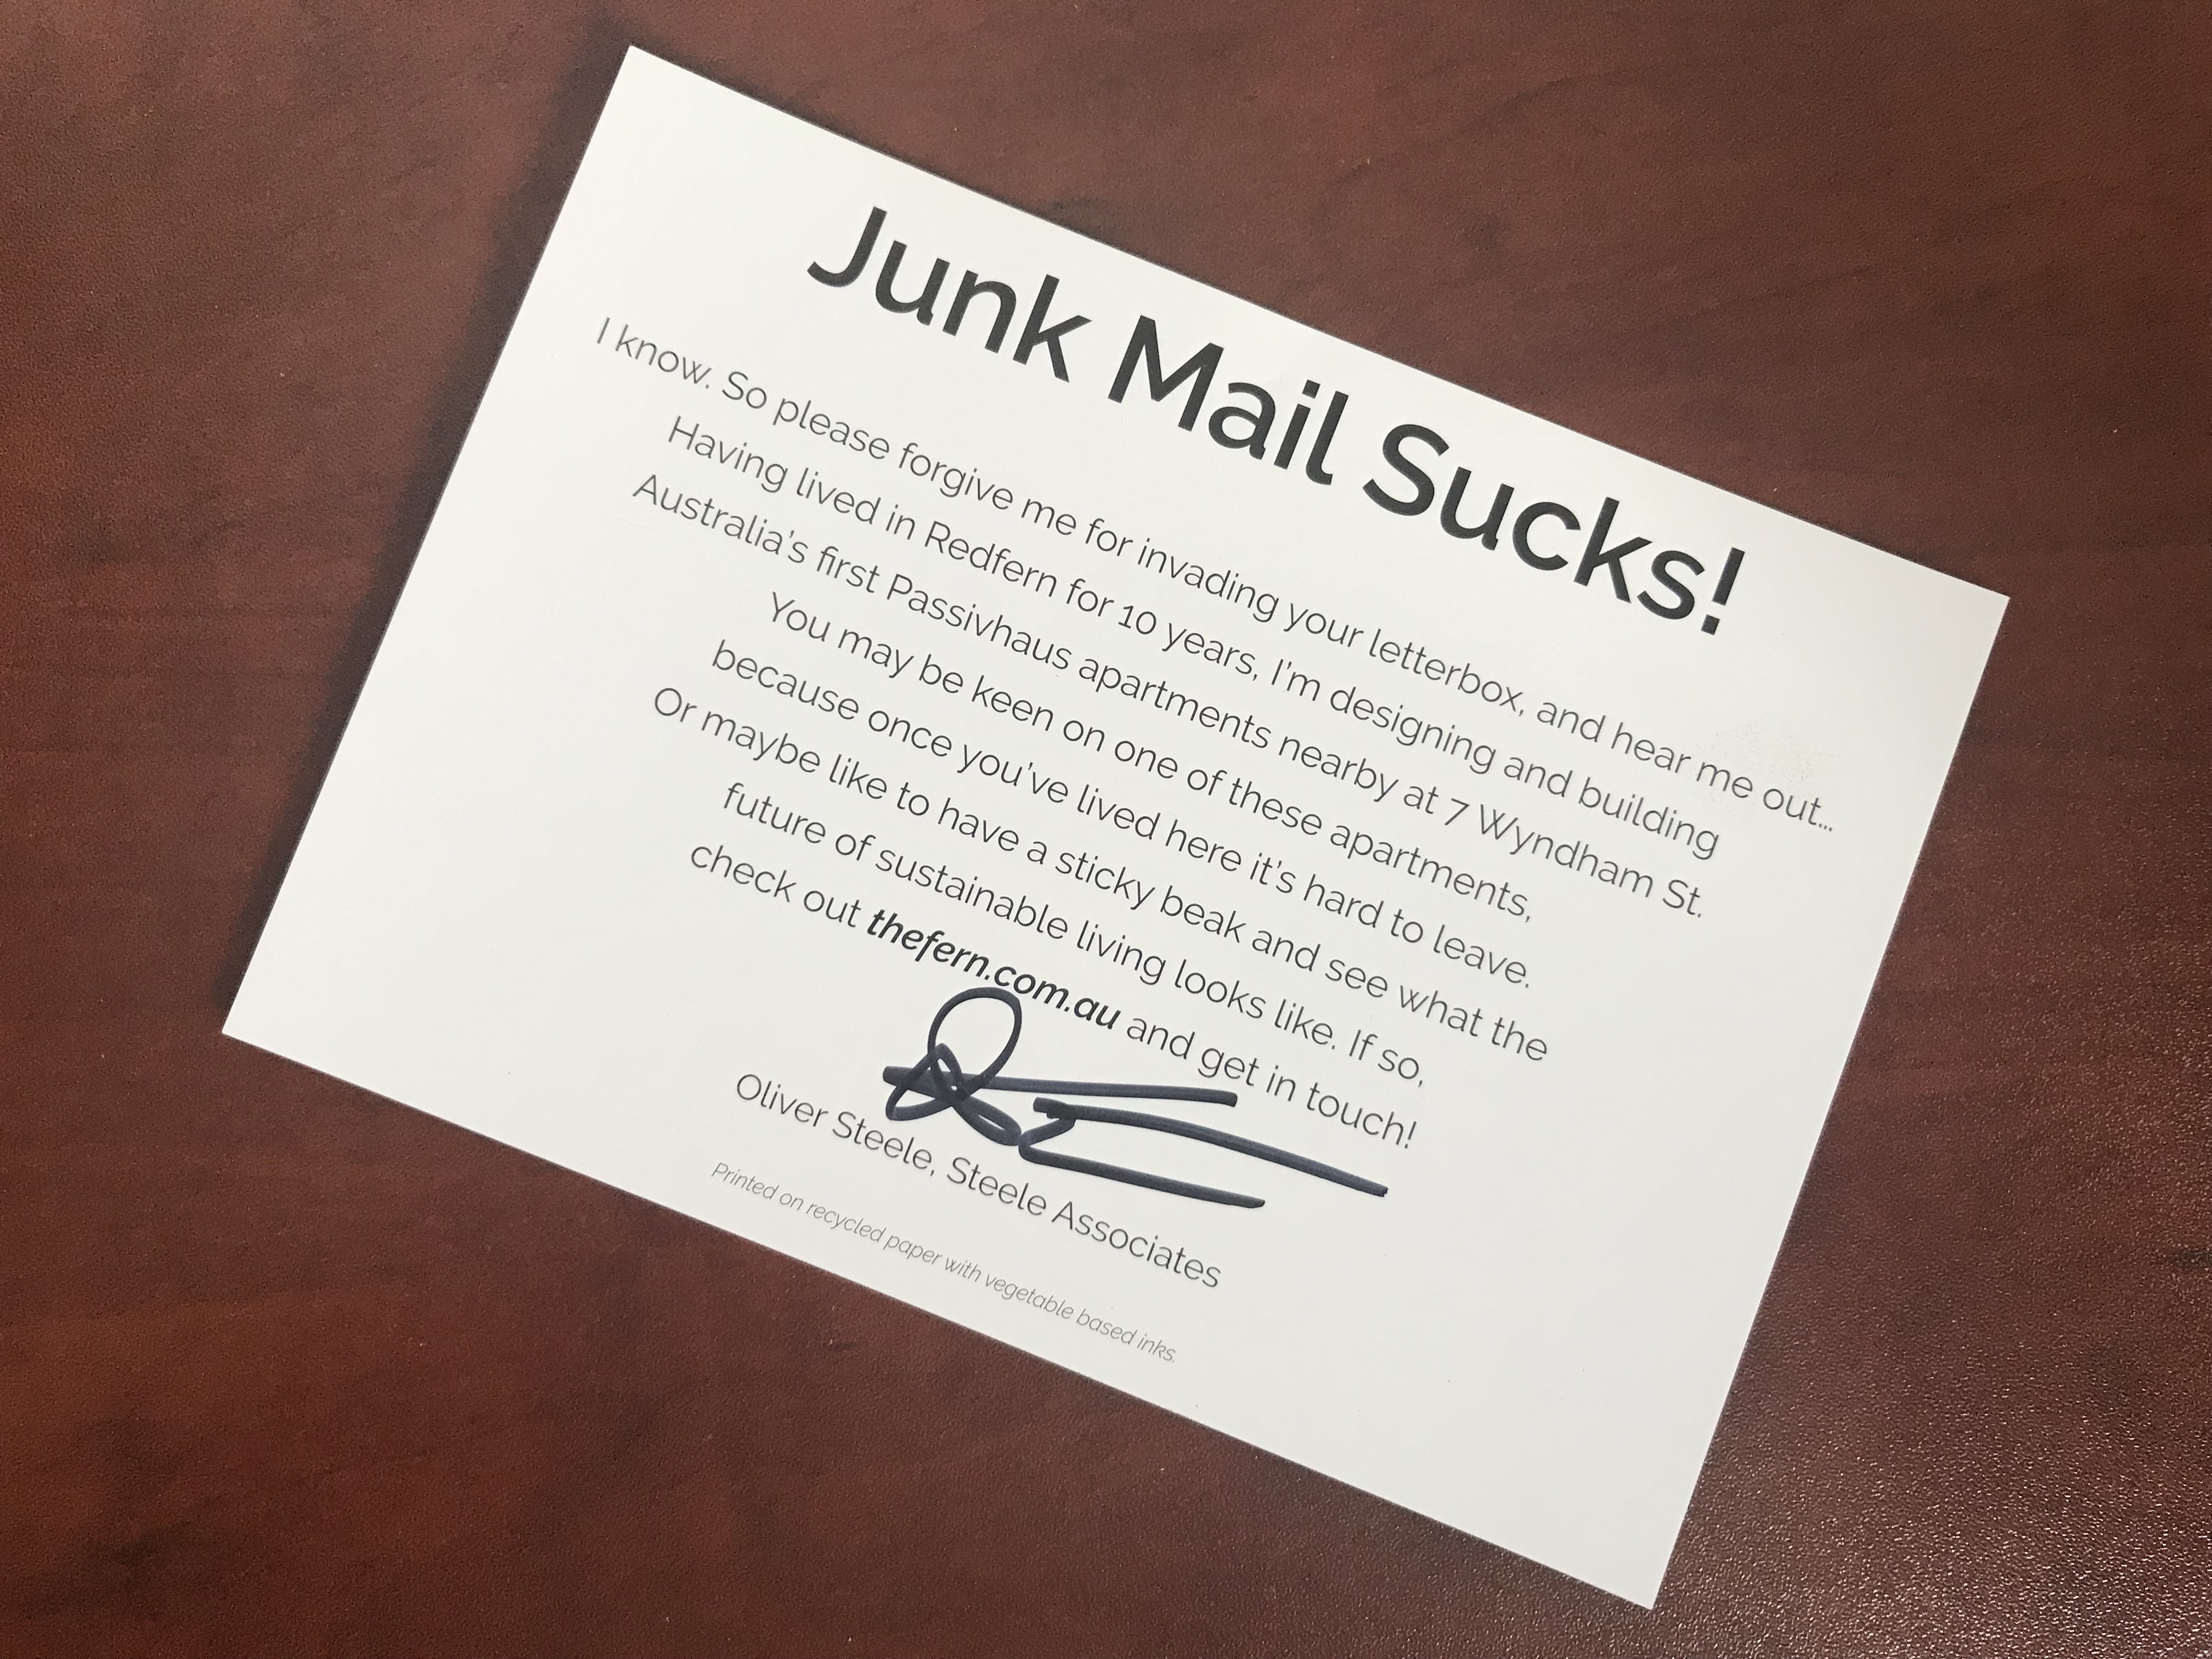 Junk Mail Sucks!
I know. So please forgive me for invading your letterbox, and hear me out...
Having lived in Redfern for 10 years, I'm designing and building
Australia's first Passivhaus apartments nearby at 7 Wyndham St.
You may be keen on one of these apartments,
because once you've lived here it's hard to leave.
Or maybe like to have a sticky beak and see what the
future of sustainable living looks like. If so,
check out thefern.com.au and get in touch!
Oliver Steele, Steele Associates
Printed on recycled paper with vegetable based inks.